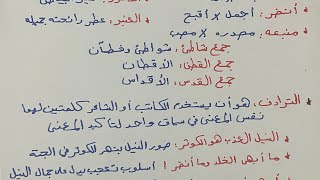 * أنضر : أجمل × أقبح * العنبر : عطر رائحته جميلة
* منبعه : مصدره × مصب
جمع شاطئ : شواطئ وشطآن
جمع القطن : الأقطان
جمع القدس : الأقداس
* الترادف : هو أن يستخدم الكاتب أو الشاعر كلمتين لهما
نفس المعنى في سياق واحد لتأكيد المعنى
* النيل العذب هو الكوثر : صور النيل بنهر الكوثر في الجنة
* ما أبهى الخلد وما أنضر ! أسلوب تعجب يدل على جمال النيل